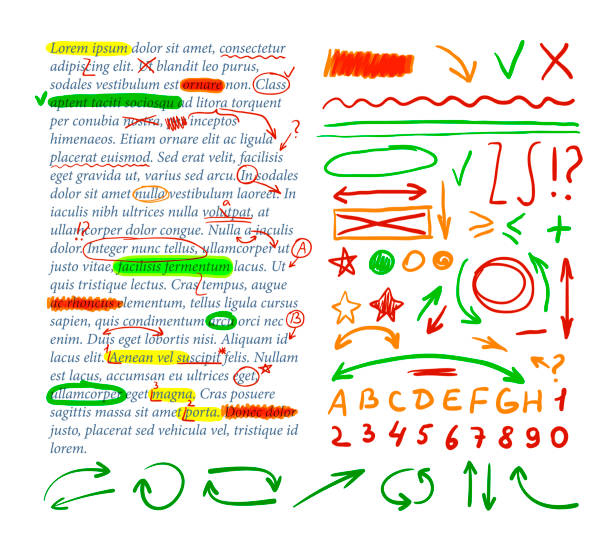 Lorem ipsum dolor sit amet, consectetur
adipiscing elit. Ut blandit leo purus,
sodales vestibulum est ornare non. Class
aptent taciti sociosqu ad litora torquent
per conubia nostra, inceptos
himenaeos. Etiam ornare elit ac ligula
?
placerat euismod. Sed erat velit, facilisis
eget gravida ut, varius sed arcu. In sodales
dolor sit amet nulla vestibulum laoreet. In
a
iaculis nibh ultrices nulla volutpat, at
!?
ullamcorper dolor congue. Nulla a iaculis
dolor. Integer nunc tellus, ullamcorper ut A
justo vitae, facilisis fermentum lacus. Ut
quis tristique lectus. Cras tempus, augue
ac rhoncus elementum, tellus ligula cursus
sapien, quis condimentum arcu orci nec B
enim. Duis eget lobortis nisi. Aliquam id
1
lacus elit. Aenean vel suscipit felis. Nullam
est lacus, accumsan eu ultrices eget,
3
ullamcorper eget magna. Cras posuere
2
sagittis massa sit amet porta. Donec dolor
justo, placerat sed vehicula vel, tristique id
lorem.
!?
≥ ≤ +
?
A B C D E F G H 1
2 3 4 5 6 7 8 9 0